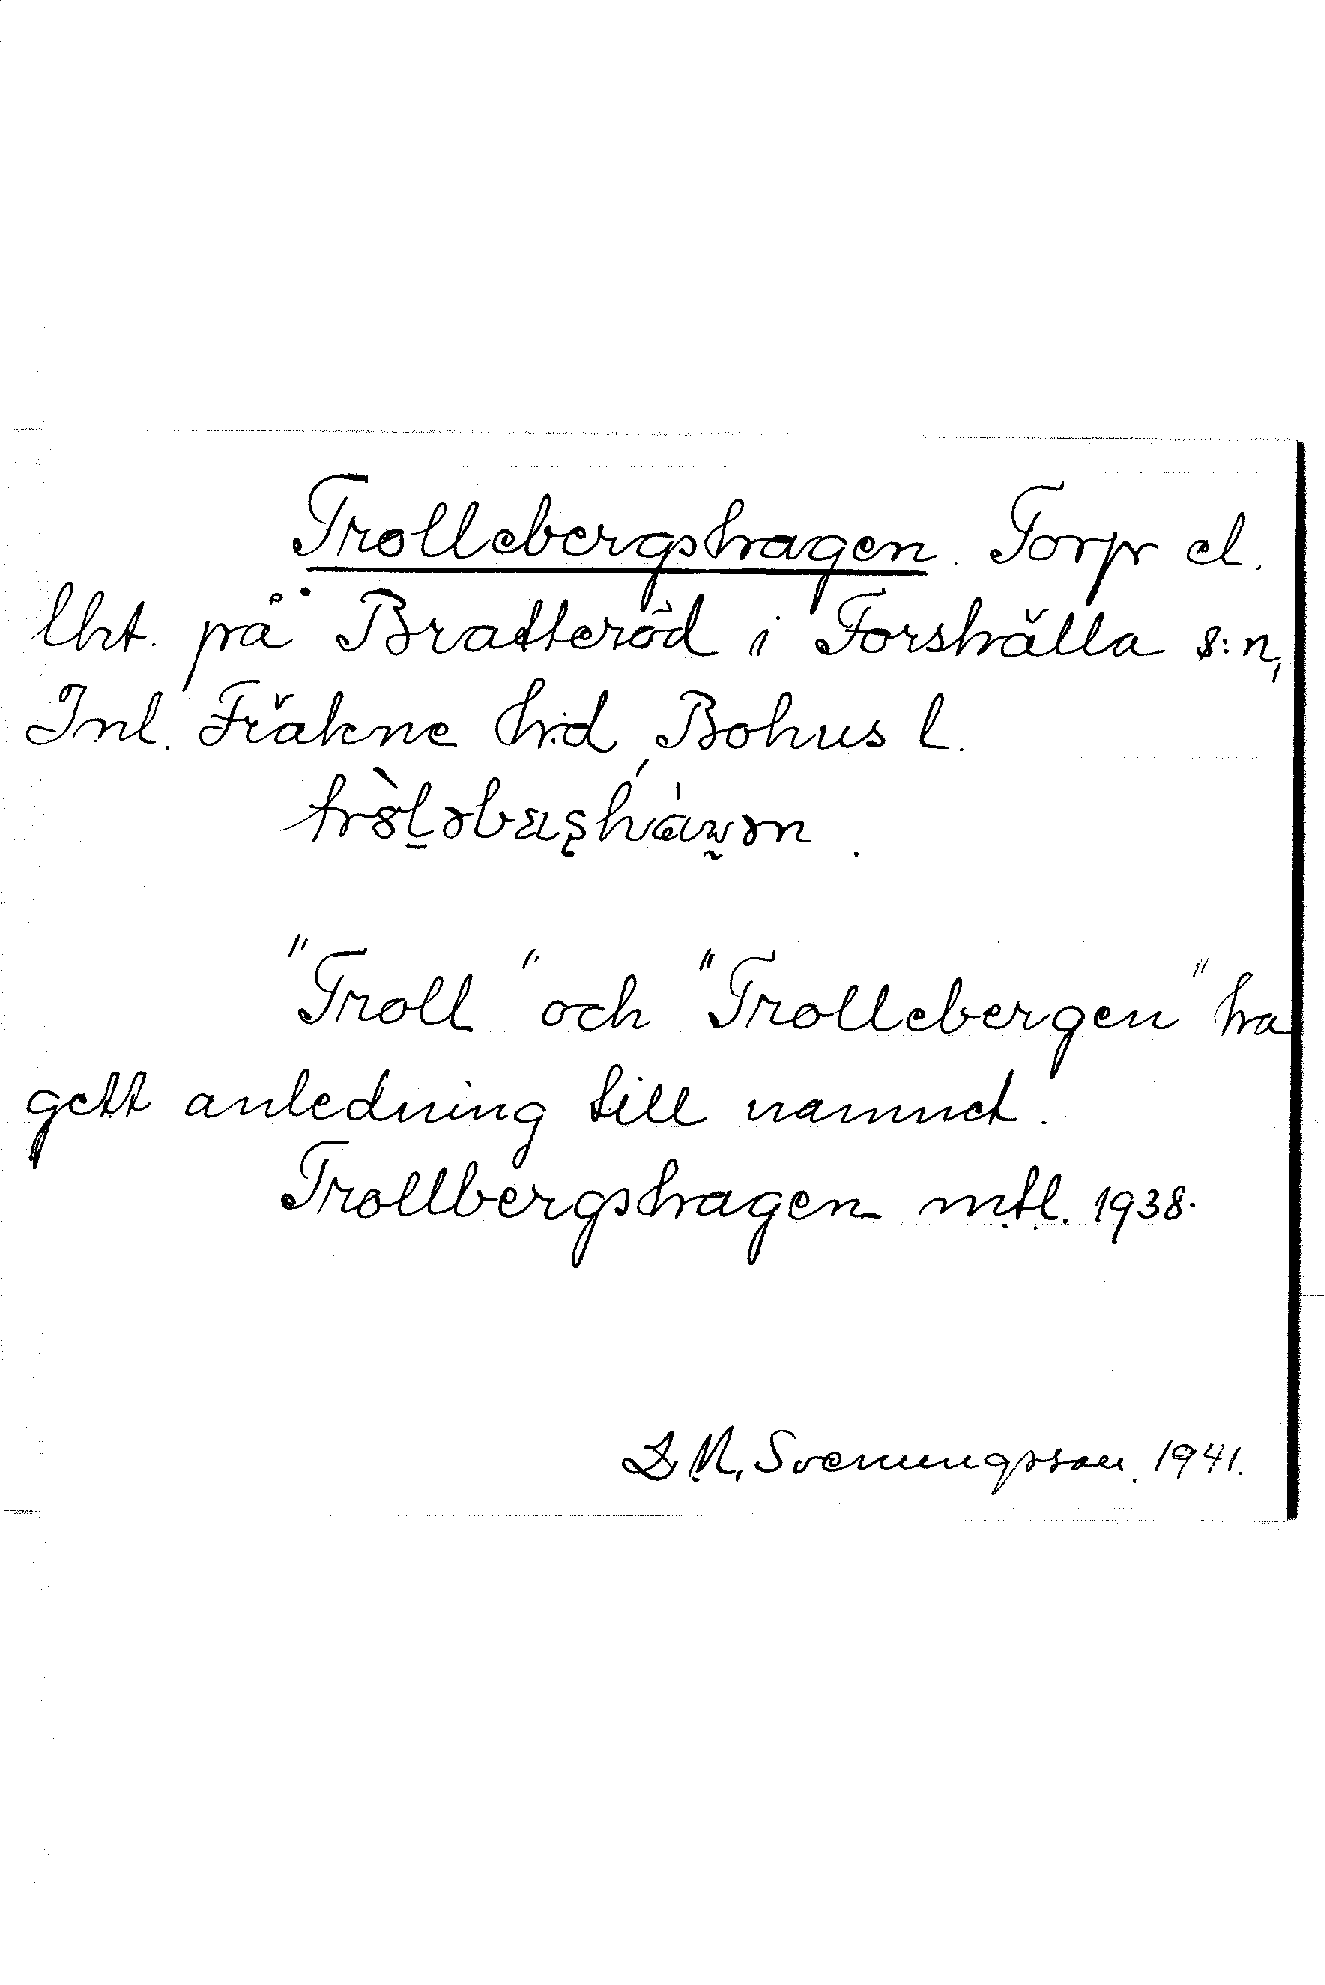 Trollebergshagen. Torp el.
lht. på Bratteröd i Forshälla s:n,
Inl. Fräkne hd, Bohus l.
"Troll" och "Trollebergen" ha
gett anledning till namnet.
Trollbergshagen mtl. 1938.
D. M. Svenungsson. 1941.